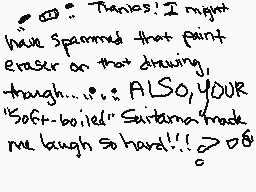 Thanks! I might
have spammed that paint
eraser on that drawing,
though...... ALSO, YOUR
"Soft-boiled" Saitama made
me laugh so hard!!!